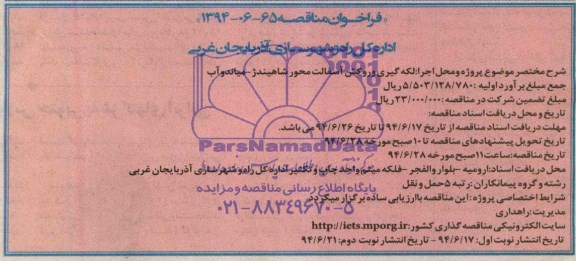 «فراخوان مناقصه ۶۵-۰۶-۱۳۹۴»
اداره کل راه و شهرسازی آذربایجان غربی
شرح مختصر موضوع پروژه و محل اجرا: لکه گیری و روکش آسفالت محور شاهیندژ - میاندوآب
جمع مبلغ برآورد اولیه: ۵/۵۰۳/۱۲۸/۷۸۰ ریال
مبلغ تضمین شرکت در مناقصه: ۲۳/۰۰۰/۰۰۰ ریال
تاریخ و محل دریافت اسناد مناقصه:
مهلت دریافت اسناد مناقصه از تاریخ ۹۴/۶/۱۷ تا تاریخ ۹۴/۶/۲۶ می باشد.
تاریخ تحویل پیشنهادهای مناقصه تا ۱۰ صبح مورخه ۹۴/۶/۲۸
تاریخ مناقصه: ساعت ۱۱ صبح مورخه ۹۴/۶/۲۸
محل دریافت اسناد: ارومیه - بلوار والفجر - فلکه میثم واحد چاپ و تکثیر اداره کل راه و شهرسازی آذربایجان غربی
رشته و گروه پیمانکاران: رتبه ۵ حمل و نقل
شرایط اختصاصی پروژه: این مناقصه با ارزیابی ساده برگزار میگردد.
مدیریت: راهداری
سایت الکترونیکی مناقصه گذاری کشور: http://iets.mporg.ir
تاریخ انتشار نوبت اول: ۹۴/۶/۱۷ - تاریخ انتشار نوبت دوم: ۹۴/۶/۲۱
ParsNamadData
پایگاه اطلاع رسانی مناقصه و مزایده
۰۲۱-۸۸۳۴۹۶۷۰-۵